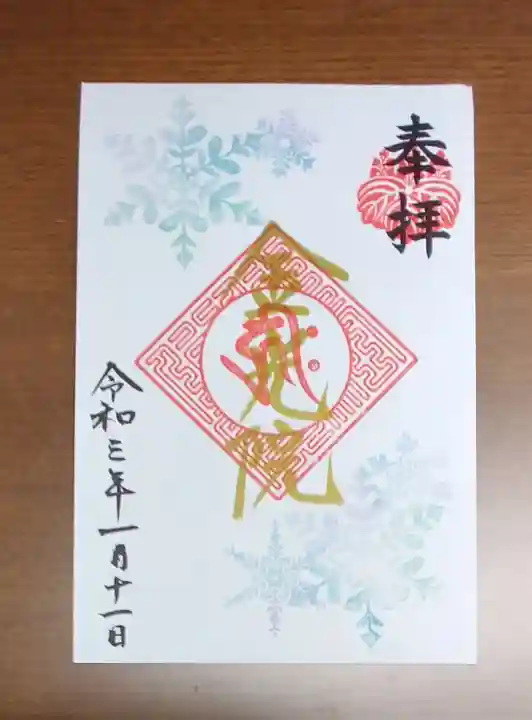 奉拝
金光院
令和三年一月十一日